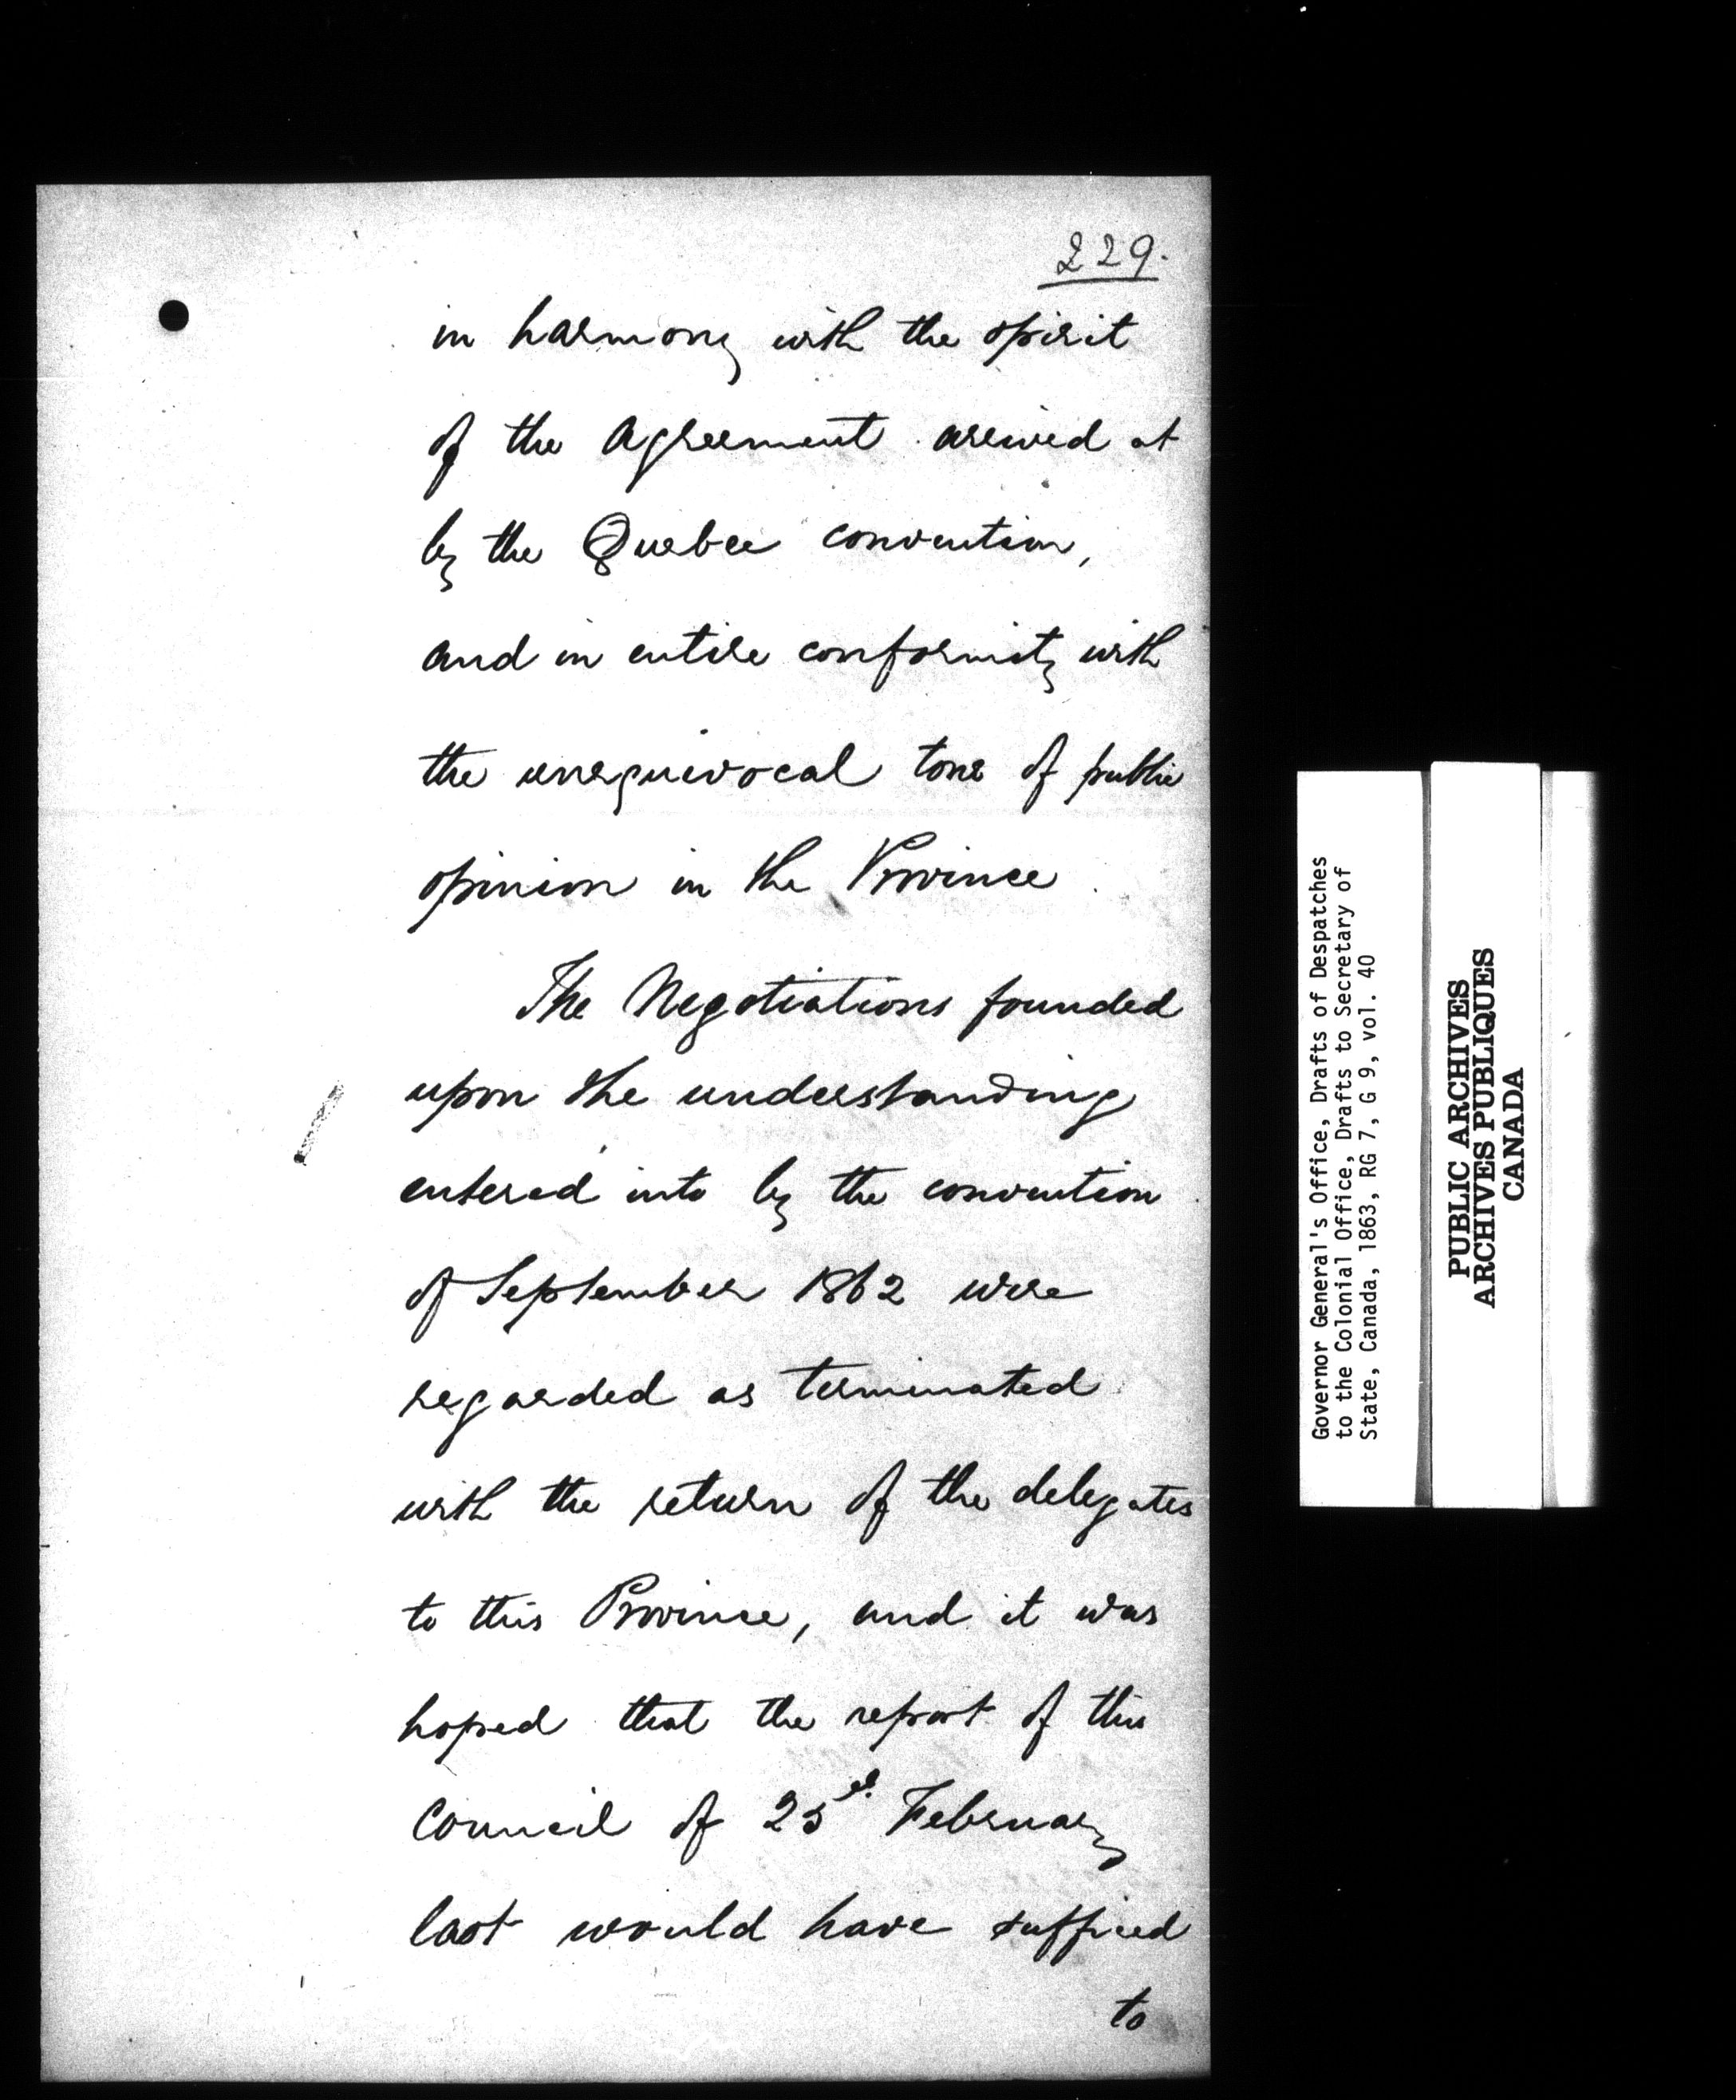 229.
in harmony with the spirit
of the Agreement arrived at
by the Quebec convention,
and in entire conformity with
the unequivocal tone of public
opinion in the Province
The Negotiations founded
upon the understanding
entered into by the convention
of September 1862 were
regarded as terminated
with the return of the delegates
to this Province, and it was
hoped that the report of this
Council of 25 February
last would have sufficed
to
Governor General's Office, Drafts of Despatches
to the Colonial Office, Drafts to Secretary of
State, Canada, 1863, RG 7, G 9, vol. 40
PUBLIC ARCHIVES
ARCHIVES PUBLIQUES
CANADA